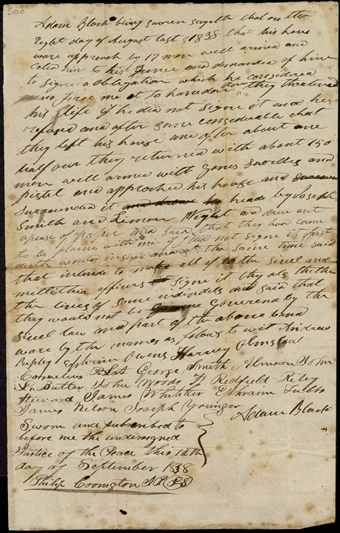 300
Adam Black being sworn sayeth that on the
Eight day of August last 1838 that his house
ware approach by 17 more well armed and
Caled him to his fence and demanded of him
to Signe a obligation which he considered
force me to they threatened
his life if he did not signe it and he
refused and after some considerable chat
they left his house and after about one
half our they returned with about 150
more well armed with guns Swords and
pistel and approached his house and
Surrounded it head by Joseph
Smith and Limon Wight and drew out
a peace of paper and said that they had come
to be plaine with me if I did not Signe it just
death and at the Same time said
that intends to make all of the Sivel and
melitia officers Signe it they als thretten
the lives of some individuls and said that
they would not be Governed by the
Sivel law and part of the above
ware by the names as folows to wit Andrew
Ripley Ephraim Owens Harvey Olmsted
Cornelius P Lott George Smith John
L Butler John Woods H Redfield Riley
Steward James Whitiker Ephraim Tubbs
James Nelson Joseph Younger
Adam Black
Sworn and subscribed to
before me the undersigned
Justice of the Peace this
day of September 1838
Philip Covington J.P.